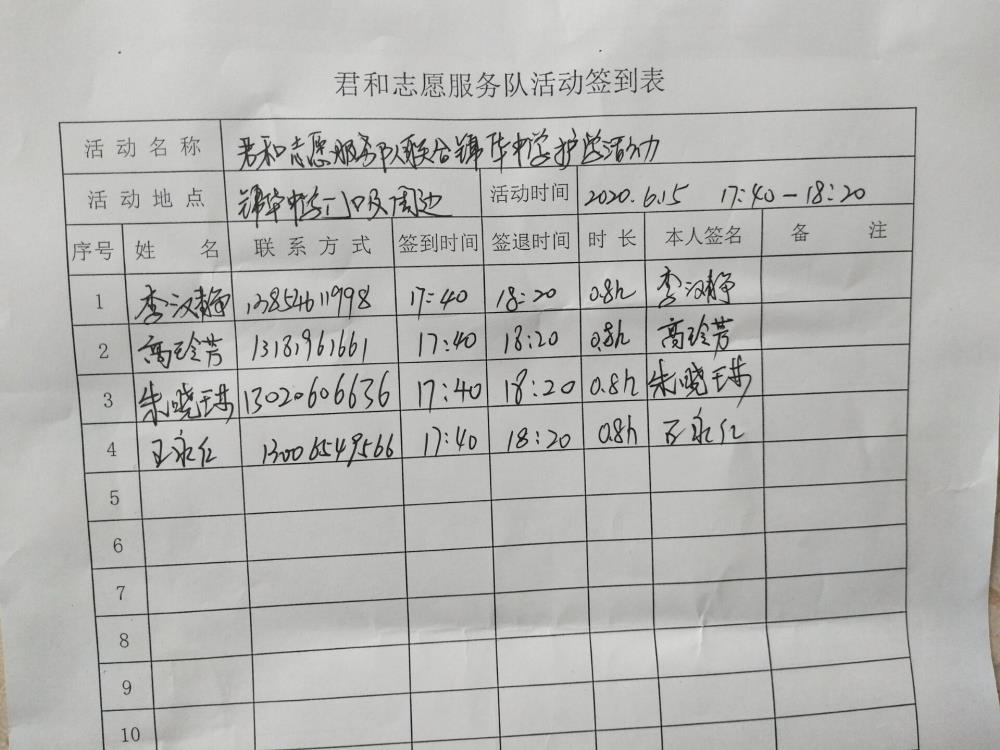 君和志愿服务队活动签到表
活动名称 君和志愿服务队联合锦华中学护学活动
活动地点 锦华中学门口及周边 活动时间 2020.6.15 17:40-18:20
序号 姓名 联系方式 签到时间 签退时间 时长 本人签名 备注
1 李汉静 13854611998 17:40 18:20 0.8h 李汉静
2 高玲芳 13181961661 17:40 18:20 0.8h 高玲芳
3 朱晓琳 13020606636 17:40 18:20 0.8h 朱晓琳
4 王永红 13006549566 17:40 18:20 0.8h 王永红
5
6
7
8
9
10